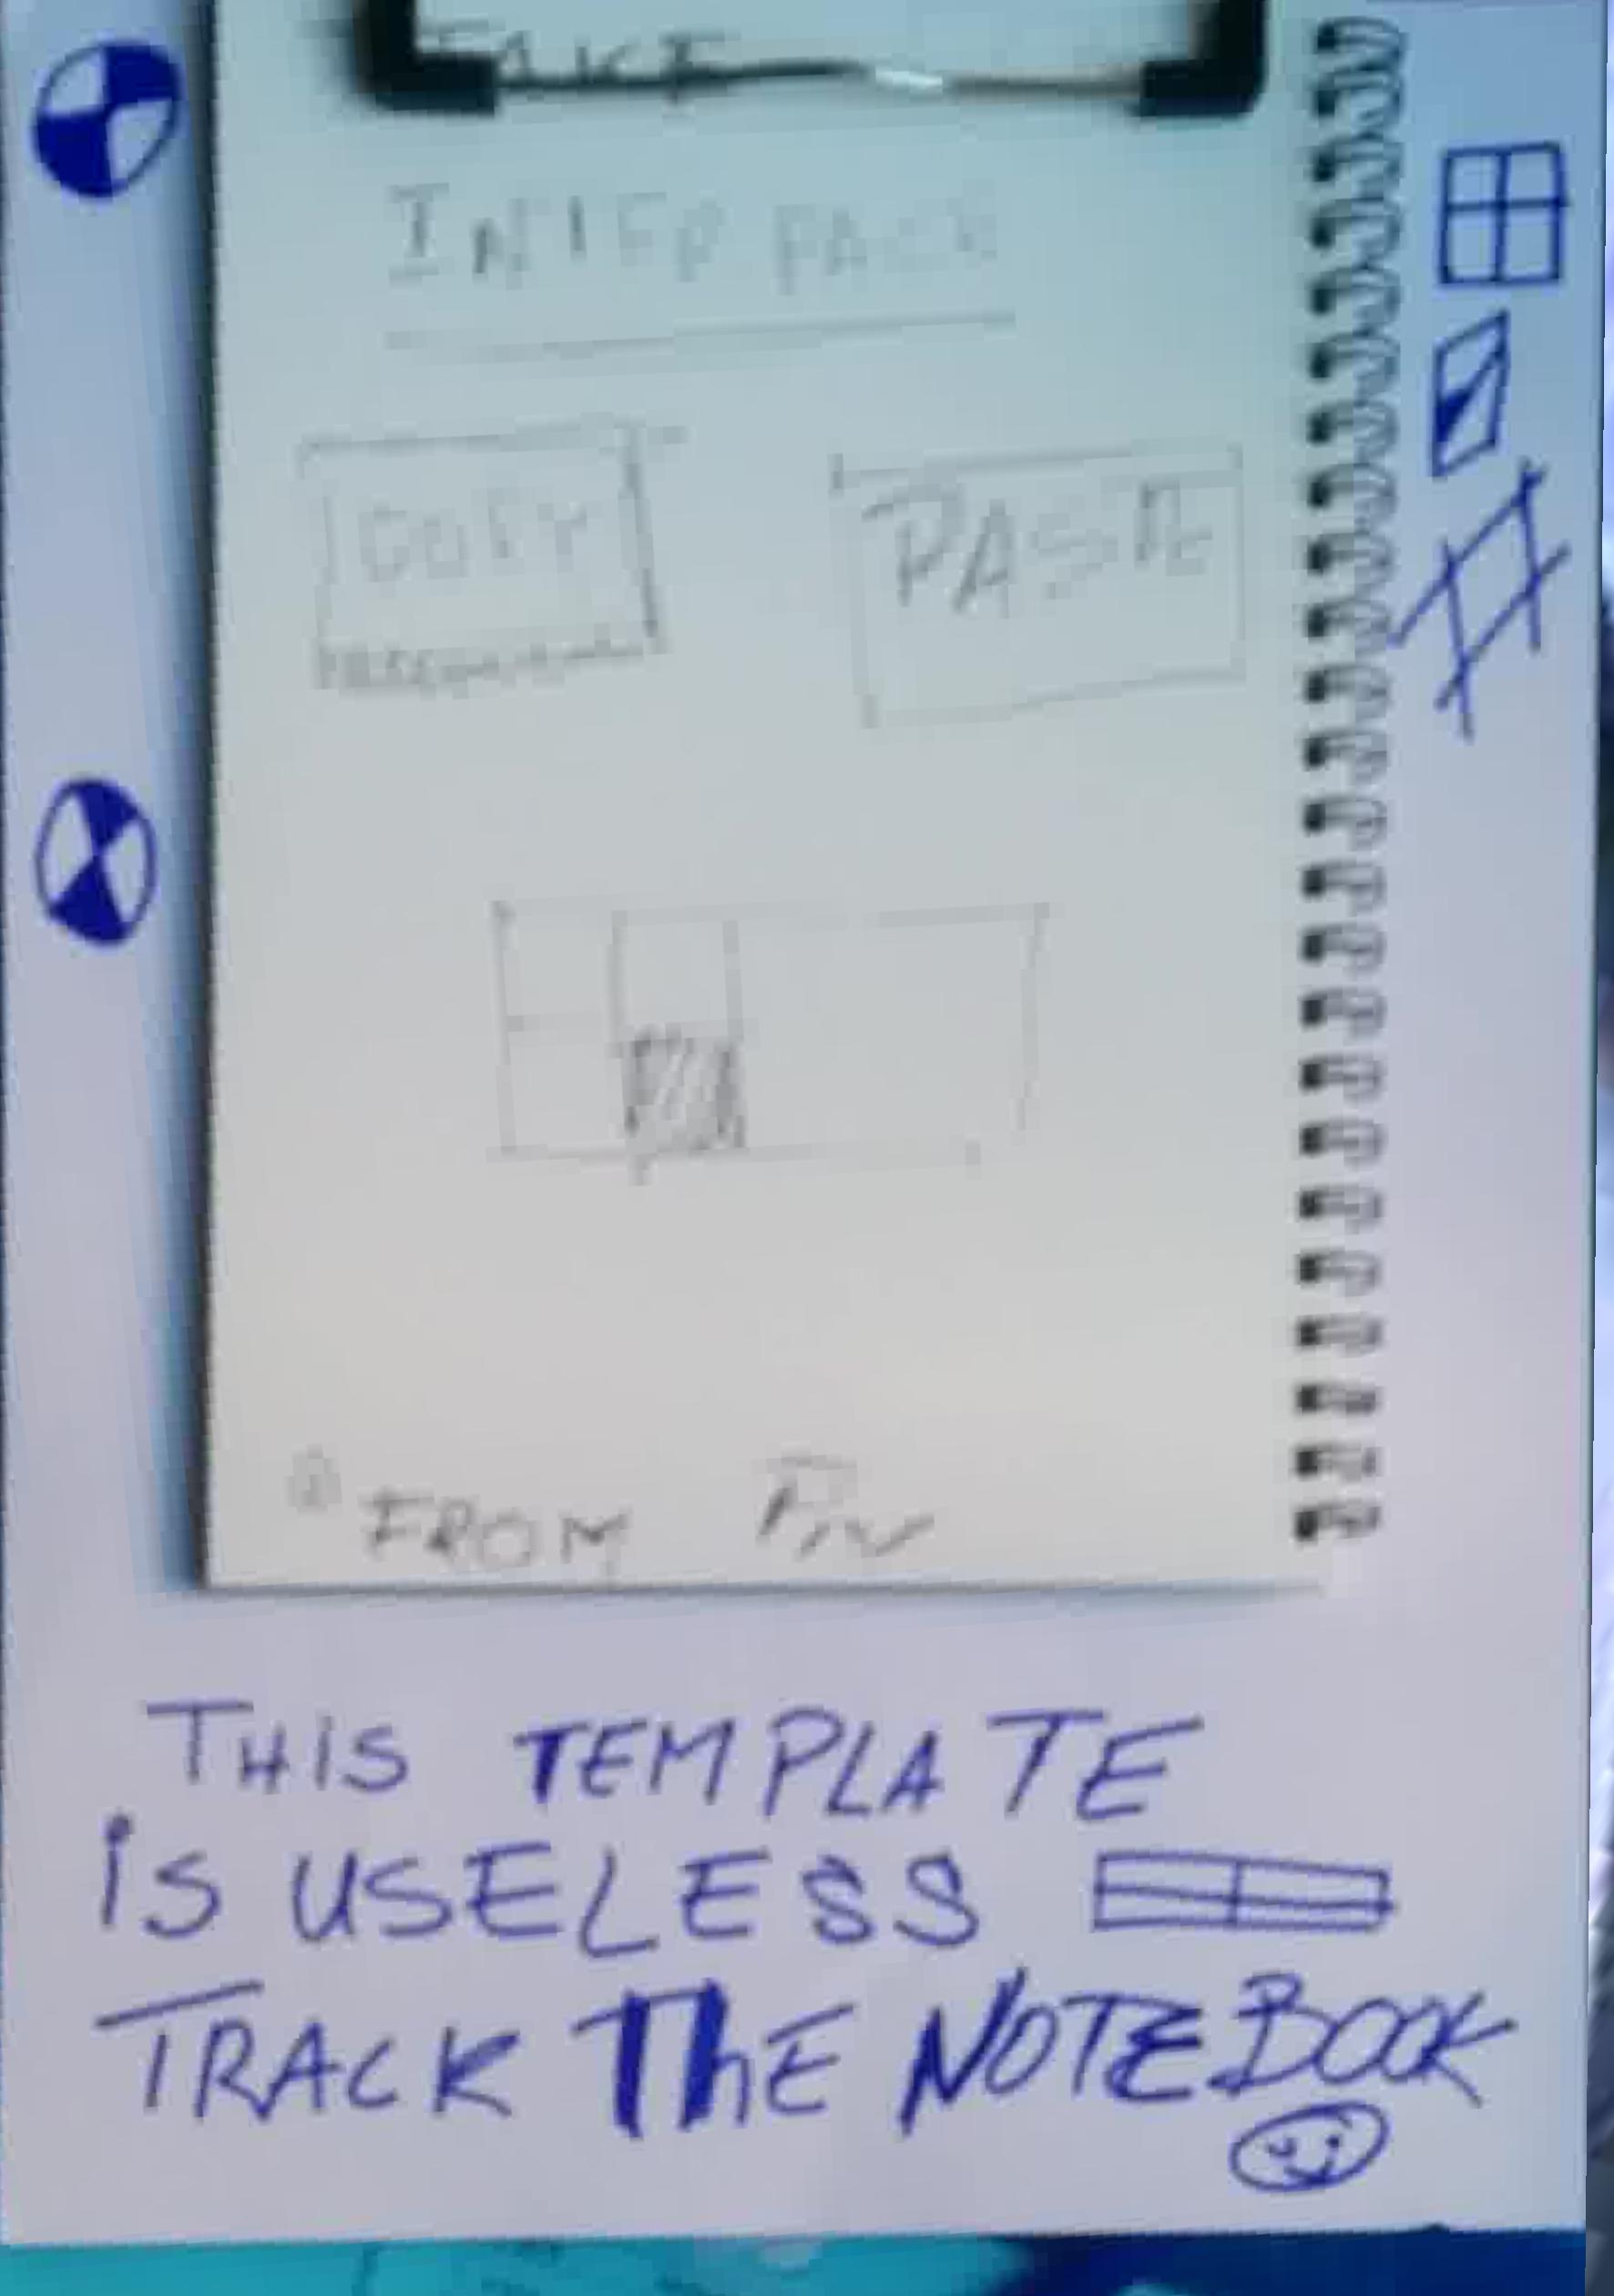 FAKE
INTERFACE
COPY PASTE
FROM
THIS TEMPLATE
IS USELESS
TRACK THE NOTEBOOK